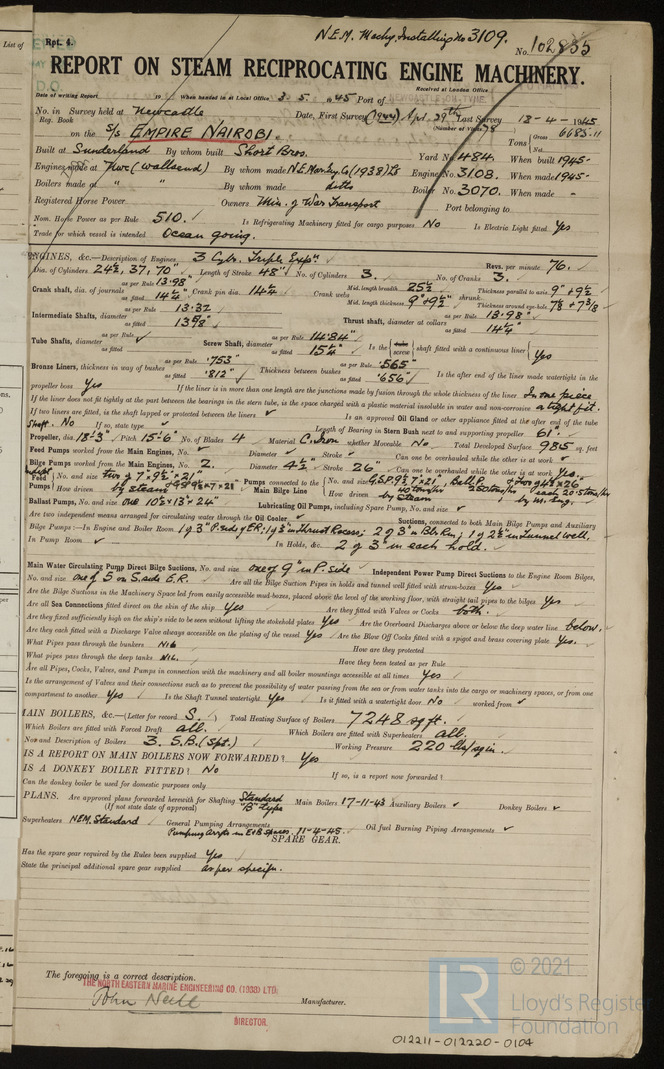 List of
Rpt. 4.
N.E.M. Machy. Installing No 3109.
No. 102835
REPORT ON STEAM RECIPROCATING ENGINE MACHINERY.
Received at London Office
Date of writing Report 19 When handed in at Local Office 3. 5. 1945 Port of
No. in Survey held at Newcastle Date, First Survey (1944) Apl. 29th Last Survey 18-4-1945
Reg. Book (Number of Visits 78
on the S/S EMPIRE NAIROBI. Tons Gross 6685.11 Net
Built at Sunderland By whom built Short Bros. Yard No. 484. When built 1945-
Engines made at Nwc (Wallsend) By whom made N.E. Mar. Eng. Co (1938) Ld Engine No. 3108. When made 1945-
Boilers made at " " By whom made ditto Boiler No. 3070. When made -
Registered Horse Power Owners Min. of War Transport Port belonging to
Nom. Horse Power as per Rule 510. Is Refrigerating Machinery fitted for cargo purposes No Is Electric Light fitted Yes
Trade for which vessel is intended Ocean going.
ENGINES, &c.—Description of Engines 3 Cylr. Triple Expn. Revs. per minute 76.
Dia. of Cylinders 24½, 37, 70" Length of Stroke 48" No. of Cylinders 3. No. of Cranks 3.
Crank shaft, dia. of journals as per Rule 13.98 as fitted 14¼ Crank pin dia. 14¼ Crank webs Mid. length breadth 25½ Mid. length thickness 9"+9½" shrunk Thickness parallel to axis 9"+9½" Thickness around eye-hole 7⅛+7⅜
Intermediate Shafts, diameter as per Rule 13.32 as fitted 13⅝" Thrust shaft, diameter at collars as per Rule 13.98" as fitted 14¼"
Tube Shafts, diameter as per Rule as fitted Screw Shaft, diameter as per Rule 14.84" as fitted 15¼" Is the tube screw shaft fitted with a continuous liner Yes
Bronze Liners, thickness in way of bushes as per Rule .753" as fitted .812" Thickness between bushes as per Rule .565" as fitted .656" Is the after end of the liner made watertight in the
propeller boss Yes If the liner is in more than one length are the junctions made by fusion through the whole thickness of the liner In one piece
If the liner does not fit tightly at the part between the bearings in the stern tube, is the space charged with a plastic material insoluble in water and non-corrosive a tight fit.
If two liners are fitted, is the shaft lapped or protected between the liners Is an approved Oil Gland or other appliance fitted at the after end of the tube
shaft. No If so, state type Length of Bearing in Stern Bush next to and supporting propeller 61".
Propeller, dia 18'-3" Pitch 15'-6" No. of Blades 4 Material C. Iron whether Moveable No Total Developed Surface 98.5 sq. feet
Feed Pumps worked from the Main Engines, No. Diameter Stroke Can one be overhauled while the other is at work
Bilge Pumps worked from the Main Engines, No. 2. Diameter 4½" Stroke 26" Can one be overhauled while the other is at work Yes.
Feed Pumps No. and size two of 7"×9½"×21" Pumps connected to the Main Bilge Line No. and size G.S.P. 9½ 7×21,
How driven by steam How driven by Steam
Ballast Pumps, No. and size one 10½"×13"×24" Lubricating Oil Pumps, including Spare Pump, No. and size
Are two independent means arranged for circulating water through the Oil Cooler Suctions, connected to both Main Bilge Pumps and Auxiliary
Bilge Pumps:—In Engine and Boiler Room 1 of 3" P. side of E.R; 1 of 3" in Thrust Recess; 2 of 3" in Blr. Rm; 1 of 2½" in tunnel well,
In Pump Room In Holds, &c. 2 of 3" in each hold.
Main Water Circulating Pump Direct Bilge Suctions, No. and size one of 9" in P. side Independent Power Pump Direct Suctions to the Engine Room Bilges,
No. and size one of 5 on S. side E.R. Are all the Bilge Suction Pipes in holds and tunnel well fitted with strum-boxes Yes
Are the Bilge Suctions in the Machinery Space led from easily accessible mud-boxes, placed above the level of the working floor, with straight tail pipes to the bilges Yes
Are all Sea Connections fitted direct on the skin of the ship Yes Are they fitted with Valves or Cocks both.
Are they fixed sufficiently high on the ship's side to be seen without lifting the stokehold plates Yes Are the Overboard Discharges above or below the deep water line below.
Are they each fitted with a Discharge Valve always accessible on the plating of the vessel Yes Are the Blow Off Cocks fitted with a spigot and brass covering plate Yes.
What Pipes pass through the bunkers Nil How are they protected
What pipes pass through the deep tanks NIL. Have they been tested as per Rule
Are all Pipes, Cocks, Valves, and Pumps in connection with the machinery and all boiler mountings accessible at all times Yes
Is the arrangement of Valves and their connections such as to prevent the possibility of water passing from the sea or from water tanks into the cargo or machinery spaces, or from one
compartment to another Yes Is the Shaft Tunnel watertight Yes Is it fitted with a watertight door. No worked from
MAIN BOILERS, &c.—(Letter for record S.) Total Heating Surface of Boilers 7248 sq ft.
Which Boilers are fitted with Forced Draft all. Which Boilers are fitted with Superheaters All.
No. and Description of Boilers 3. S.B. (Spt.) Working Pressure 220 lbs/sq in.
IS A REPORT ON MAIN BOILERS NOW FORWARDED? Yes
IS A DONKEY BOILER FITTED? No If so, is a report now forwarded?
Can the donkey boiler be used for domestic purposes only
PLANS. Are approved plans forwarded herewith for Shafting Standard "B" Type Main Boilers 17-11-43 Auxiliary Boilers Donkey Boilers
(If not state date of approval)
Superheaters NEM. Standard General Pumping Arrangements Oil fuel Burning Piping Arrangements
Pumping Arrgts in E & B Spaces. 11-4-45.
SPARE GEAR.
Has the spare gear required by the Rules been supplied Yes
State the principal additional spare gear supplied as per specifn.
The foregoing is a correct description.
THE NORTH EASTERN MARINE ENGINEERING CO. (1938) LTD.
John Neill Manufacturer.
DIRECTOR.
LR © 2021
Lloyd's Register
Foundation
012211-012220-0104